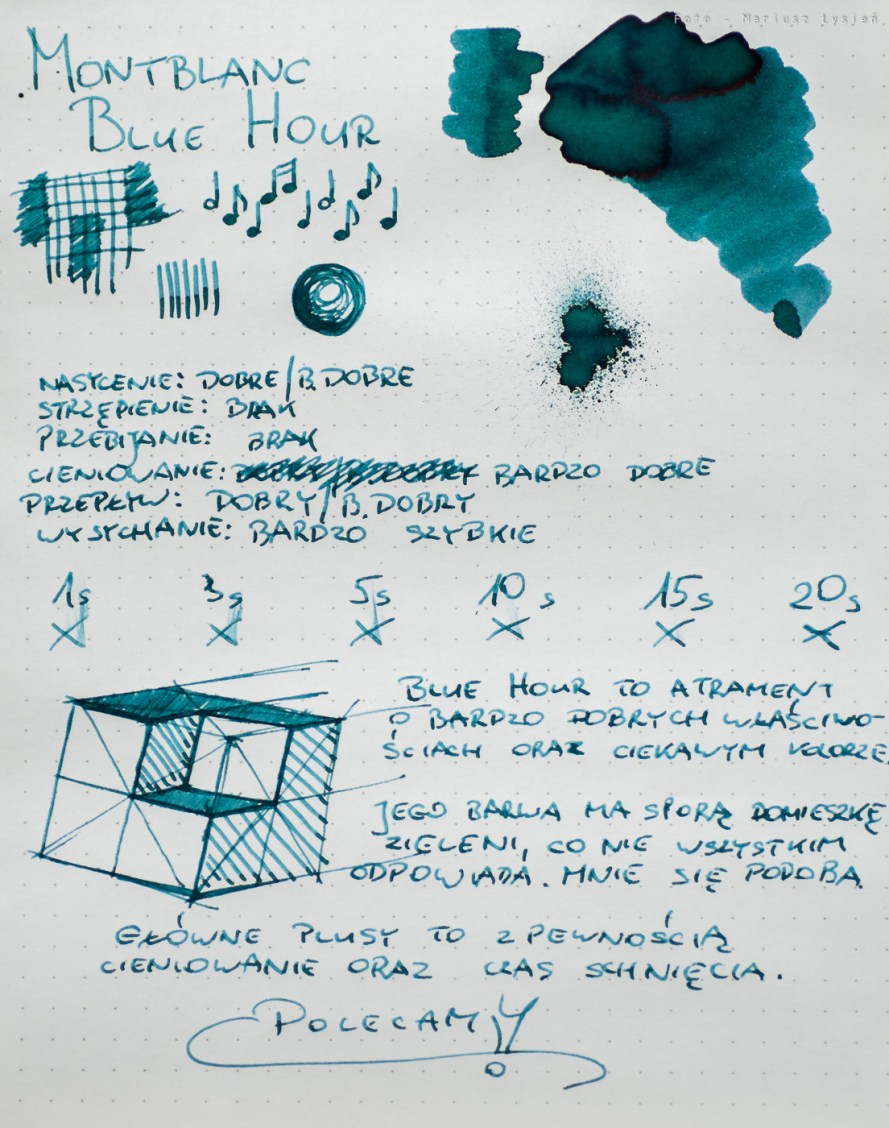 Foto - Mariusz Łysień
MONTBLANC
BLUE HOUR
NASYCENIE: DOBRE/B. DOBRE
STRZĘPIENIE: BRAK
PRZEBIJANIE: BRAK
CIENIOWANIE: BARDZO DOBRE
PRZEPŁYW: DOBRY/B. DOBRY
WYSYCHANIE: BARDZO SZYBKIE
1s 3s 5s 10s 15s 20s
BLUE HOUR TO ATRAMENT
O BARDZO DOBRYCH WŁAŚCIWO-
ŚCIACH ORAZ CIEKAWYM KOLORZE.
JEGO BARWA MA SPORĄ DOMIESZKĘ
ZIELENI, CO NIE WSZYSTKIM
ODPOWIADA. MNIE SIĘ PODOBA.
GŁÓWNE PLUSY TO Z PEWNOŚCIĄ
CIENIOWANIE ORAZ CZAS SCHNIĘCIA.
POLECAMY!